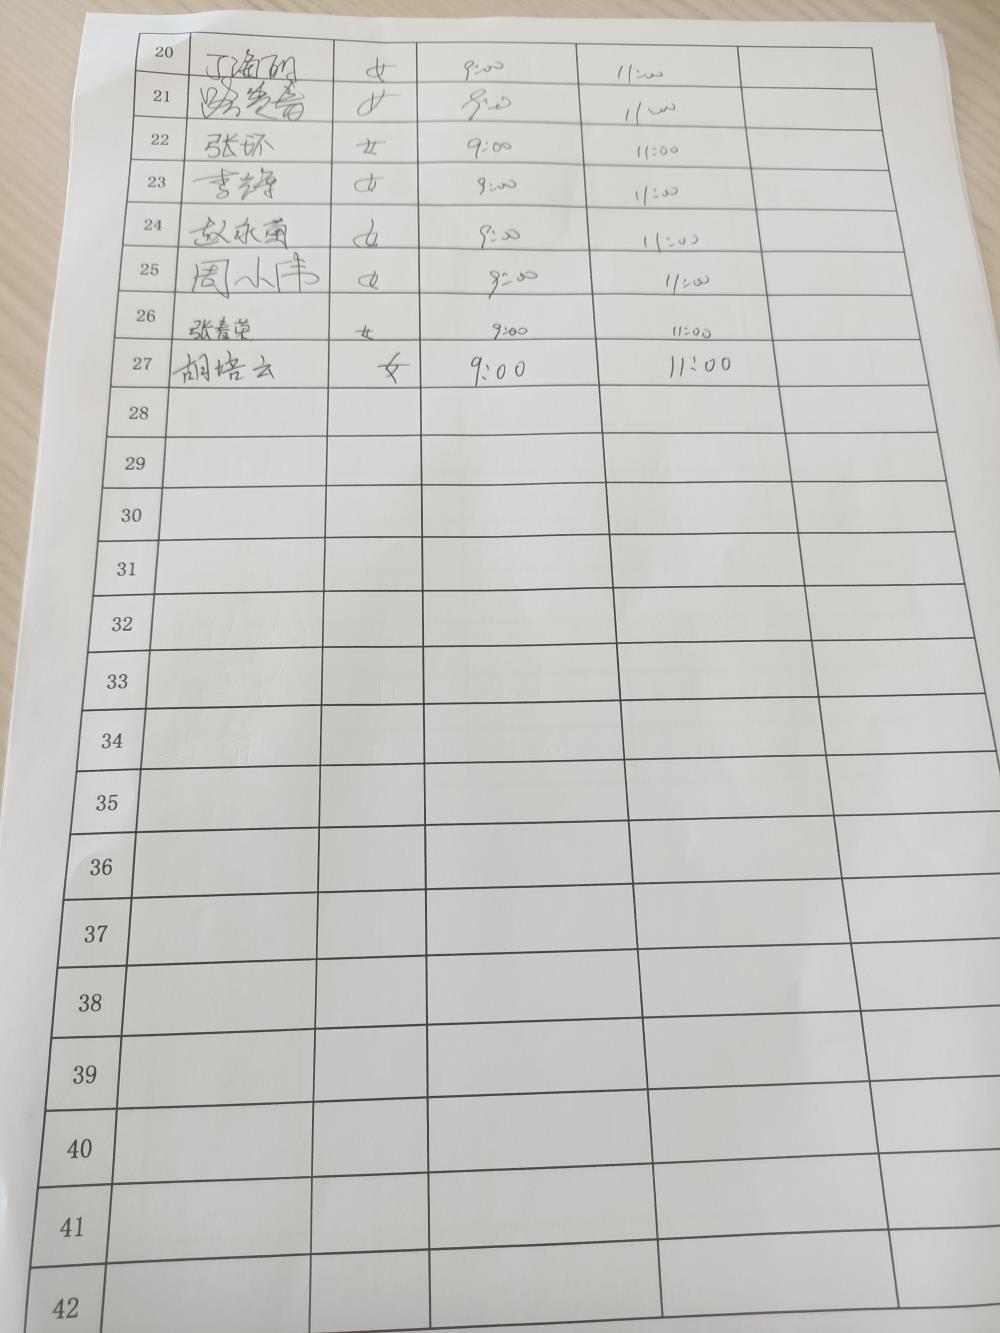 20 丁海丽 女 9:00 11:00
21 女 9:00 11:00
22 张环 女 9:00 11:00
23 李 女 9:00 11:00
24 赵永菊 女 9:00 11:00
25 周小伟 女 9:00 11:00
26 张春英 女 9:00 11:00
27 胡培云 女 9:00 11:00
28
29
30
31
32
33
34
35
36
37
38
39
40
41
42